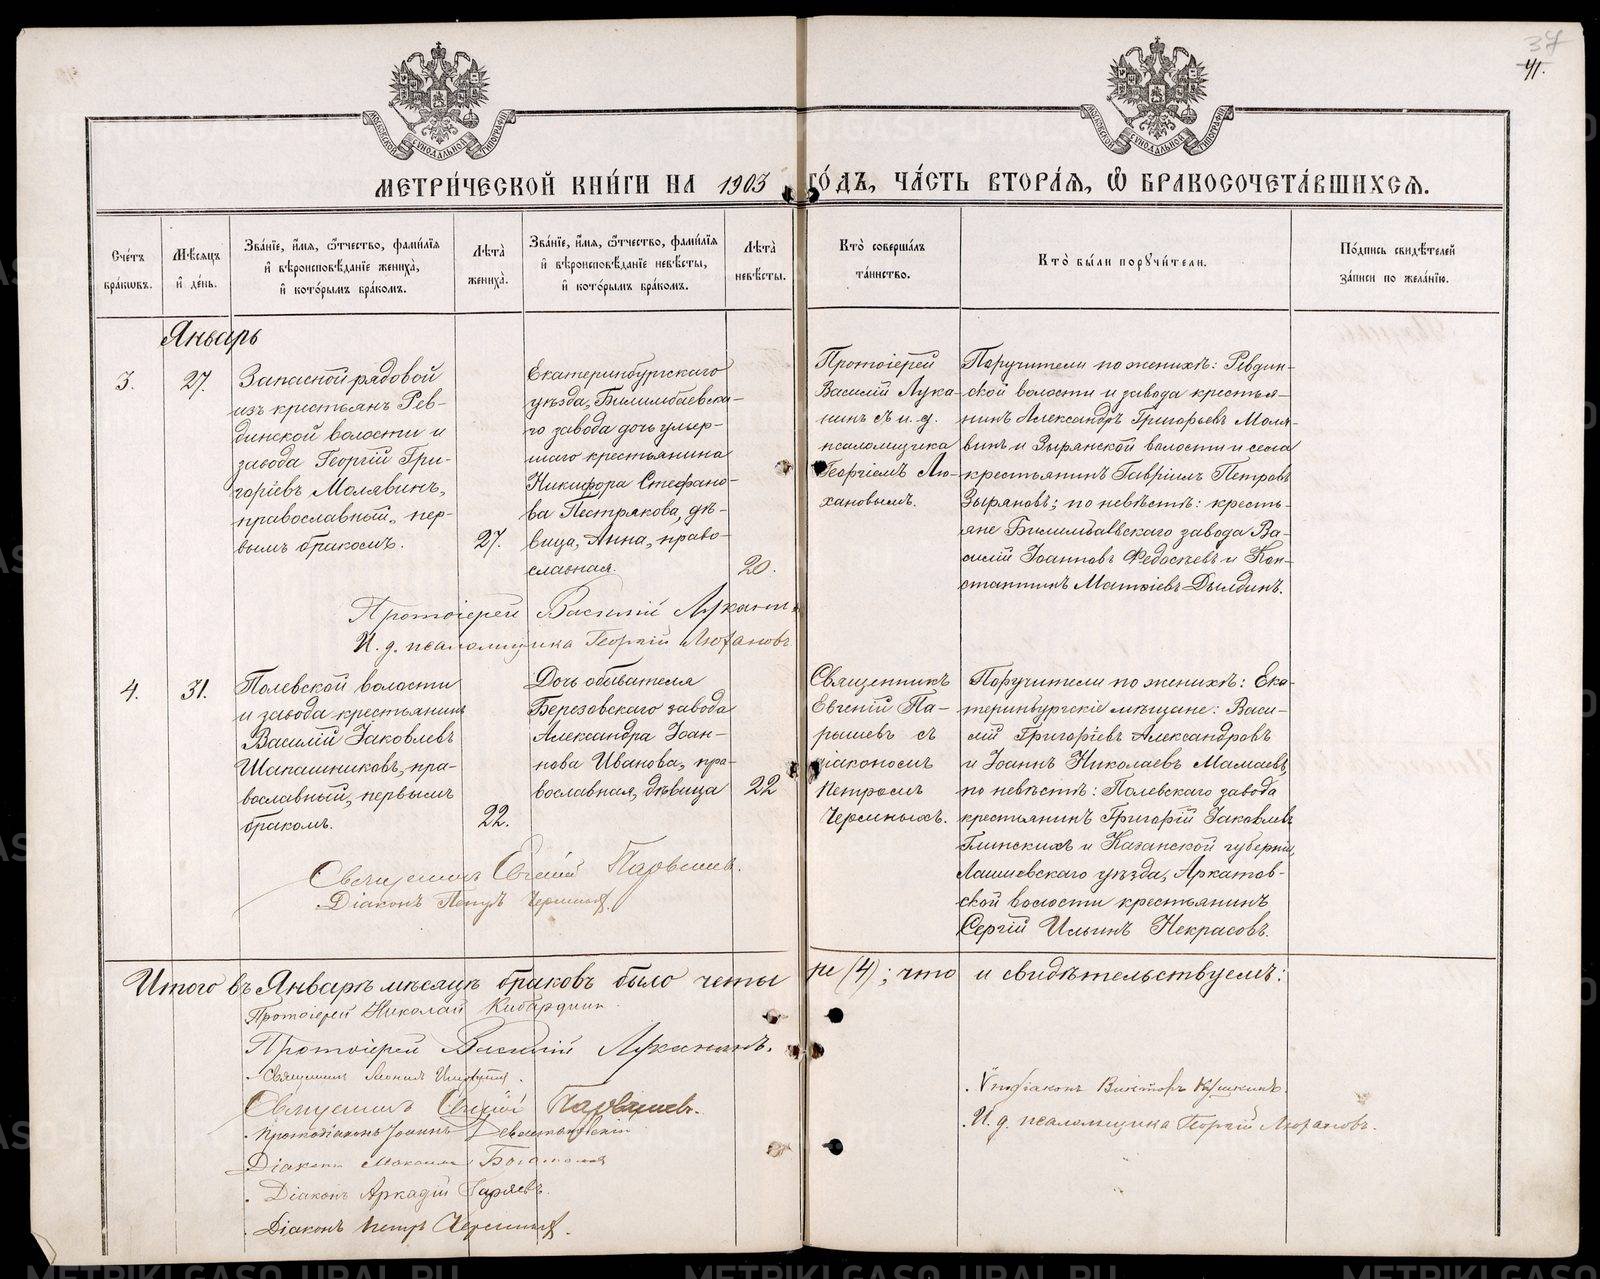 37
41.
МЕТРИ́ЧЕСКОЙ КНИ́ГИ НА 1903 ГО́ДЪ, ЧА́СТЬ ВТОРА́Я, Ѽ БРАКОСОЧЕТА́ВШИХСЯ.
Сче́тъ бра́кѡвъ.
Мѣ́сяцъ и҆ де́нь.
Зва́нїе, и҆́мя, ѻ҆́тчество, фами́лїя и҆ вѣроисповѣ́данїе жениха̀, и҆ кото́рымъ бра́комъ.
Лѣта̀ жениха̀.
Зва́нїе, и҆́мя, ѻ҆́тчество, фами́лїя и҆ вѣроисповѣ́данїе невѣ́сты, и҆ кото́рымъ бра́комъ.
Лѣта̀ невѣ́сты.
Кто̀ соверша́лъ та́инство.
Кто̀ бы́ли порꙋчи́тели.
По́дпись свидѣ́телей за́писи по жела́нїю.
Январь
3.
27.
Запасной рядовой
изъ крестьянъ Рев-
динской волости и
завода Георгій Гри-
горіевъ Молявинъ,
православный, пер-
вымъ бракомъ.
27.
Екатеринбургскаго
уѣзда, Билимбаевска-
го завода дочь умер-
шаго крестьянина
Никифора Стефано-
ва Пестрякова, дѣ-
вица, Анна, право-
славная.
20.
Протоіерей
Василій Лука-
нинъ съ и. д.
псаломщика
Георгіемъ Лю-
хановымъ.
Поручители по женихѣ: Ревдин-
ской волости и завода крестья-
нинъ Александръ Григорьевъ Моля-
винъ и Зырянской волости и села
крестьянинъ Гавріилъ Петровъ
Зыряновъ; по невѣстѣ: кресть-
яне Билимбаевскаго завода Ва-
силій Іоанновъ Федосѣевъ и Кон-
стантинъ Матѳіевъ Дылдинъ.
Протоіерей Василій Луканинъ
И. д. псаломщика Георгій Люхановъ
4.
31.
Полевской волости
и завода крестьянинъ
Василій Іаковлевъ
Шапашниковъ, пра-
вославный, первымъ
бракомъ.
22.
Дочь обывателя
Березовскаго завода
Александра Іоан-
нова Иванова, пра-
вославная, дѣвица
22
Священникъ
Евгеній Па-
рышевъ съ
діакономъ
Петромъ
Черемныхъ.
Поручители по женихѣ: Ека-
теринбургскіе мѣщане: Васи-
лій Григоріевъ Александровъ
и Іоаннъ Николаевъ Мамаевъ,
по невѣстѣ: Полевскаго завода
крестьянинъ Григорій Іаковлевъ
Глинскихъ и Казанской губерніи,
Лаишевскаго уѣзда, Аркатов-
ской волости крестьянинъ
Сергій Ильинъ Некрасовъ.
Священникъ Евгеній Парышевъ.
Діаконъ Петръ Черемныхъ.
Итого въ Январѣ мѣсяцѣ браковъ было четыре (4); что и свидѣтельствуемъ:
Протоіерей Николай Кибардинъ
Протоіерей Василій Луканинъ.
Священникъ
Священникъ Евгеній Парышевъ.
Протодіаконъ Іоаннъ
Діаконъ Максимъ
Діаконъ Аркадій Гаряевъ.
Діаконъ Петръ Черемныхъ.
Ѵподіаконъ Викторъ
И. д. псаломщика Георгій Люхановъ.
METRIKI.GASO-URAL.RU